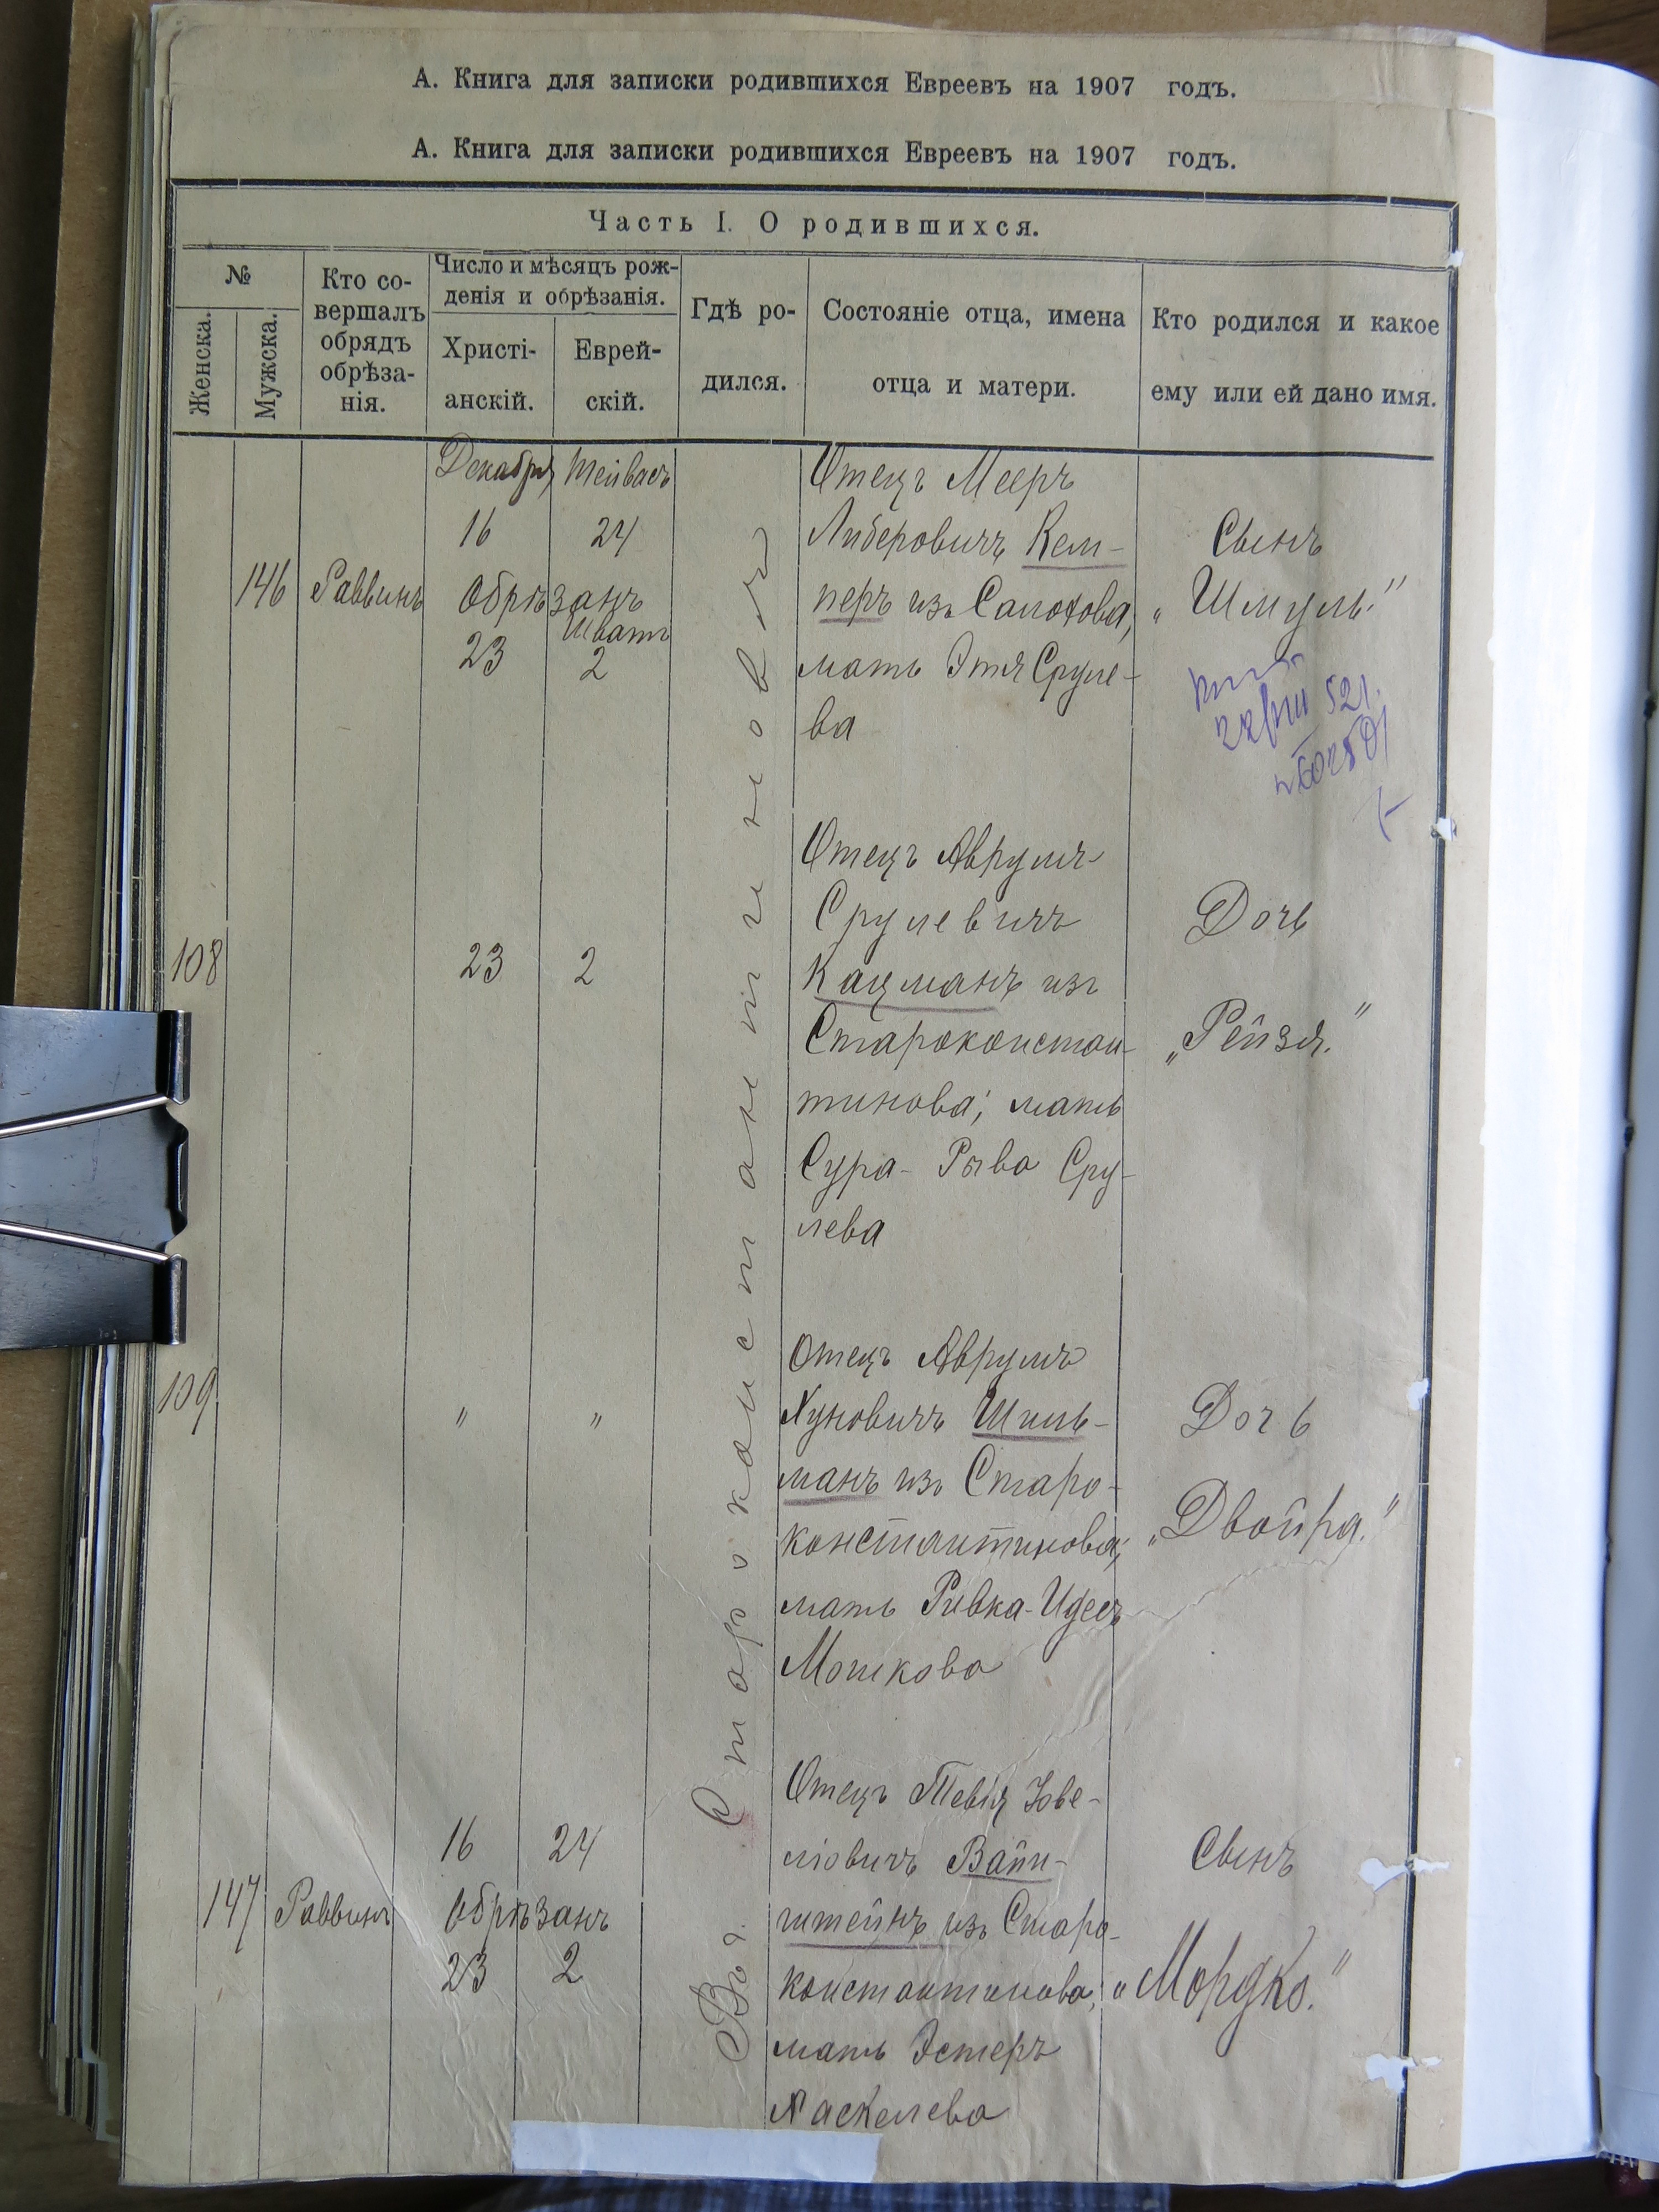 А. Книга для записки родившихся Евреевъ на 1907 годъ.
А. Книга для записки родившихся Евреевъ на 1907 годъ.
Часть I. О родившихся.
№
Женска.
Мужска.
Кто со-
вершалъ
обрядъ
обрѣза-
нія.
Число и мѣсяцъ рож-
денія и обрѣзанія.
Христі-
анскій.
Еврей-
скій.
Гдѣ ро-
дился.
Состояніе отца, имена
отца и матери.
Кто родился и какое
ему или ей дано имя.
Въ г. Староконстантиновѣ
146
Раввинъ
Декабря Тейвасъ
16 24
Обрѣзанъ
Шватъ
23 2
Отецъ Мееръ
Либеровичъ Кем-
перъ изъ
мать Этя Сруле-
ва
Сынъ
„Шмуль"
108
23 2
Отецъ Аврумъ-
Срулевичъ
Кацманъ изъ
Староконстан-
тинова; мать
Сура-Рыва Сру-
лева
Дочь
„Рейзя."
109
" "
Отецъ Аврумъ
Хуновичъ Шиль-
манъ изъ Старо-
константинова;
мать Ривка-Идесъ
Мошкова
Дочь
„Двойра."
147
Раввинъ
16 24
Обрѣзанъ
23 2
Отецъ Тевія
Вайн-
штейнъ изъ Старо-
константинова;
мать Эстеръ
Хаскелева
Сынъ
„Мордко."